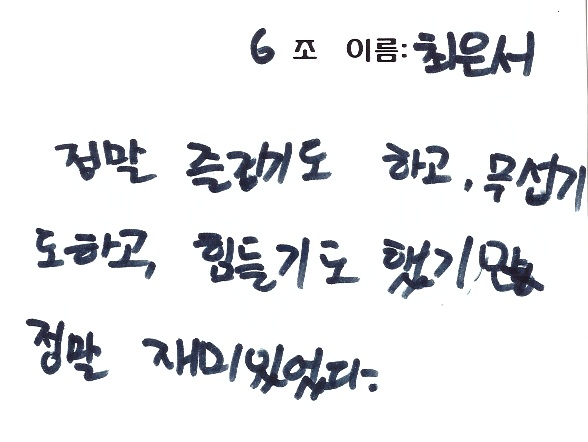 6 조 이름: 최은서
정말 즐겁기도 하고, 무섭기
도하고, 힘들기도 했기만
정말 재미있었다.